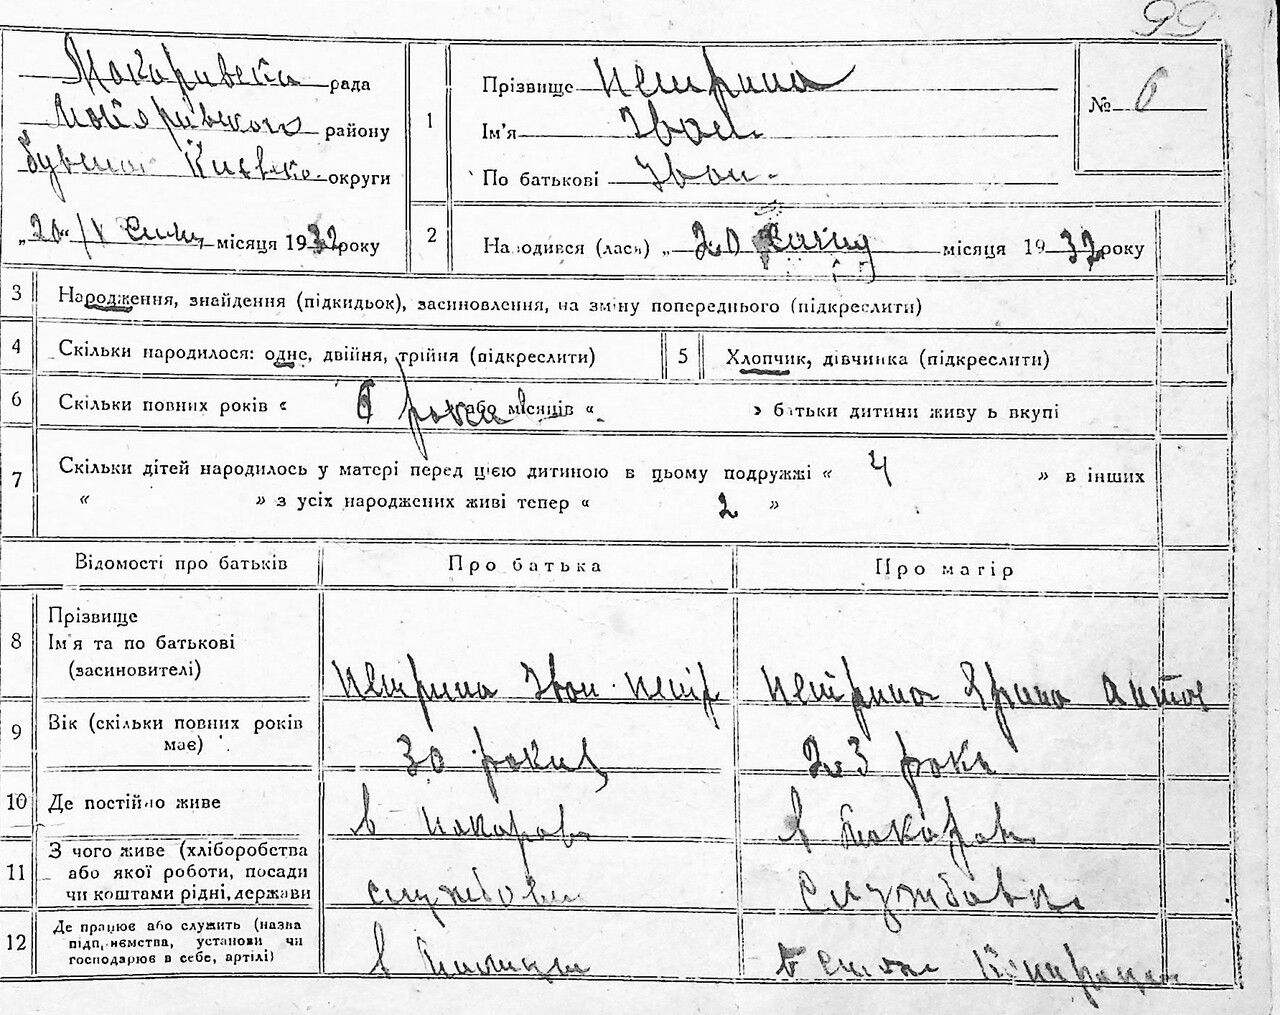 99
Макарівська рада
Макарівського району
бувшої Київсько. округи
„20“ /X місяця 1932 року
1
Прізвище Петрина
Ім'я Іван
По батькові Іван.
№ 6
2
На одився (лась) „ 20 місяця 1932 року
3
Народження, знайдення (підкидьок), засиновлення, на зміну попереднього (підкреслити)
4
Скільки народилося: одне, двійня, трійня (підкреслити)
5
Хлопчик, дівчинка (підкреслити)
6
Скільки повних років « 6 роки або місяців « » батьки дитини живу ь вкупі
7
Скільки дітей народилось у матері перед цією дитиною в цьому подружжі « 4 » в інших
« » з усіх народжених живі тепер « 2 »
Відомості про батьків
Про батька
Про матір
8
Прізвище
Ім'я та по батькові
(засиновителі)
Петрина Іван Петр
Петрина Ярина Антов
9
Вік (скільки повних років
має)
30 років
23 роки
10
Де постійно живе
в Макарові
в Макарові
11
З чого живе (хліборобства
або якої роботи, посади
чи коштами рідні, держави
службовець
Службовка
12
Де працює або служить (назва
підп, нємства, установи чи
господарює в себе, артілі)
в